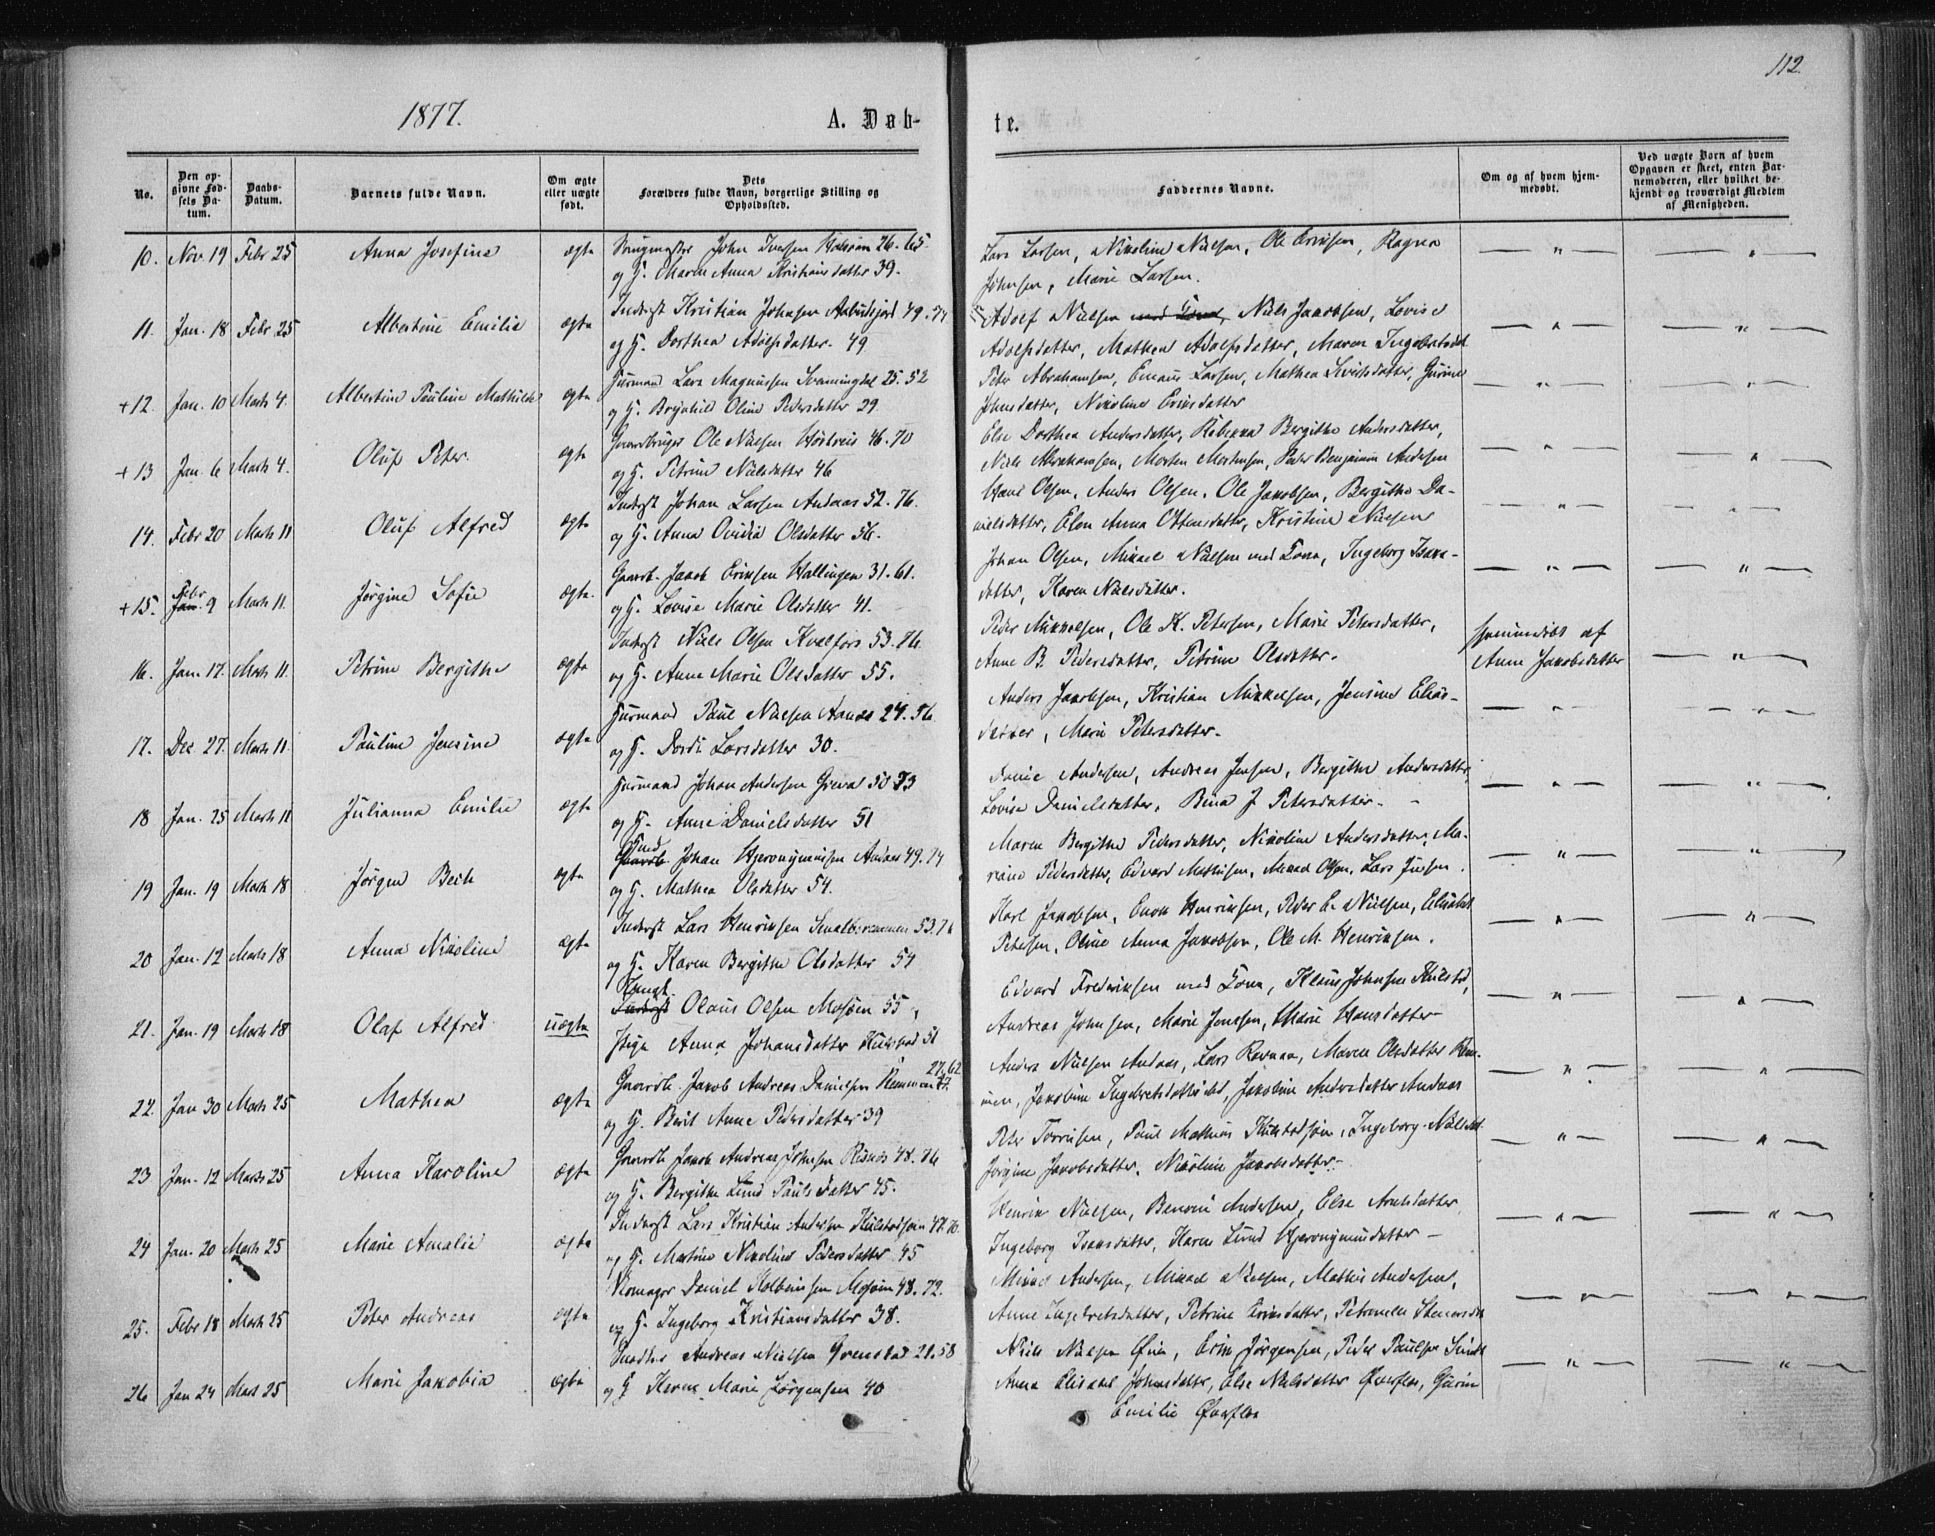 112.
1877.
A. Døb-
te.
No.
Den opgivne Fødsels Datum.
Daabs-Datum.
Barnets fulde Navn.
Om ægte eller uægte født.
Dets Forældres fulde Navn, borgerlige Stilling og Opholdssted.
Faddernes Navne.
Om og af hvem hjemmedøbt.
Ved uægte Børn af hvem Opgaven er skeet, enten Barnemoderen, eller hvilket bekjendt og troværdigt Medlem af Menigheden.
10. Nov. 19 Febr 25 Anna Josefine ægte John Iversen 26. 65.
og H. Maren Anna Kristiansdatter 39.
Lars Larsen, Nikoline Nielsen, Ole Eriksen, Ragna
Johnsen, Marie Larsen.
11. Jan. 18 Febr. 25 Albertine Emilie ægte Inderst Kristian Johnsen 49. 74
og H. Dorthea Adolfsdatter 49
Adolf Nielsen med Kona, Niels Jakobsen, Lovise
Adolfsdatter, Mathea Adolfsdatter, Maren Ingebretsdat.
+12. Jan. 10 Marts 4. Albertine Pauline Mathilde ægte Husmand Lars Magnussen Svenningdal 25. 52
og H. Brynhild Oline Pedersdatter 29.
Peter Abrahamsen, Larsen, Mathea Sivertsdatter, Gurine
Johnsdatter, Nikoline Eriksdatter
+13 Jan. 6 Marts 4. Oluf Peter ægte Gaardbruger Ole Nielsen 46. 70
og H. Petrine Nielsdatter 46
Else Dorthea Andersdatter, Rebekka Bergithe Andersdatter,
Niels Abrahamsen, Morten Mortensen, Peder Benjamin Andersen
14. Febr 20 Marts 11 Oluf Alfred ægte Inderst Johan Larsen Andaas 52. 76.
og H. Anna Ovidia Olsdatter 56.
Hans Olsen, Anders Olsen, Ole Jakobsen, Bergithe Da-
nielsdatter, Elen Anna Ottensdatter, Kristine Nielsen
+15. Febr Jan. 9 Marts 11. Jørgine Sofie ægte. Gaardb. Jakob Eriksen Hallingen 31. 61.
og H. Lovise Marie Olsdatter 41.
Johan Olsen, Mikael Nielsen med Kona, Ingeborg Isaks-
datter, Karen Nielsdatter.
16. Jan. 17. Marts 11. Petrine Bergithe ægte Inderst Niels Olsen Kvalfors 53. 76.
og H. Anne Marie Olsdatter 55.
Peder Mikkelsen, Ole K. Petersen, Marie Petersdatter,
Anne B. Pedersdatter, Petrine Olsdatter.
Hjemmedøbt af
Anne Jakobsdatter
17. Dec 27. Marts 11. Pauline Jensine ægte Husmand Paul Nielsen 24. 56.
og H. Dordi Larsdatter 30.
Anders Jakobsen, Kristian Mikkelsen, Jensine Elias-
datter, Marie Petersdatter.
18 Jan. 25 Marts 11 Julianna Emilie ægte Husmand Johan Andersen Greva 50 73
og H. Anne Danielsdatter 51
Daniel Andersen, Andreas Jensen, Bergithe Andersdatter,
Lovise Danielsdatter, Bina J. Petersdatter.
19 Jan. 19 Marts 18 Jørgen Bech ægte Ind. Gaardb. Johan Hjeronymussen Andaas 49. 74
og H. Mathea Olsdatter 54.
Maren Bergithe Pedersdatter, Nikoline Andersdatter, Ma-
riane Pedersdatter, Edvard Mathisen, Mikael Olsen, Lars Juesen.
20 Jan. 12 Marts 18 Anna Nikoline ægte Inderst Lars Henriksen 53. 76
og H. Karen Bergithe Olsdatter 54
Karl Jakobsen, Enok Henriksen, Peder E. Nielsen, Elisabet
Petersen, Oline Anna Jakobsen, Ole M. Henriksen.
21. Jan. 19 Marts 18 Olaf Alfred uægte Ungk. Inderst Olaus Olsen Mosjøen 55,
Pige Anna Johansdatter Kulstad 51
Edvard Frederiksen med Kona, Klaus Johnsen Kulstad,
Andreas Johnsen, Marie Jenssen, Marie Hansdatter
22. Jan 30 Marts 25 Mathea ægte Gaardb. Jakob Andreas Danielsen Remmen 27. 62
og H. Berit Anne Pedersdatter 39
Anders Nielsen Andaas, Lars Remmen, Maren Olsdatter Rem-
men, Jakobine Ingebretsdatter ibd, Jakobine Andersdatter Andaas
23 Jan. 12 Marts 25 Anna Karoline ægte Gaardb. Jakob Andreas Johnsen 48. 76
og H. Bergithe Lund Paulsdatter 45.
Peter Torrisen, Paul Mathias Kulstadsjøn, Ingeborg Nielsdat.
Jørgine Jakobsdatter, Nikoline Jakobsdatter.
24 Jan. 20 Marts 25 Marie Amalie ægte Inderst Lars Kristian Andersen Kulstadsjøen 47. 70.
og H. Martine Nikoline Pedersdatter 45
Henrik Nielsen, Benoni Andersen, Else Arntsdatter,
Ingeborg Isaksdatter, Karen Lund Hjeronymusdatter
25. Febr 18 Marts 25 Peter Andreas ægte Skomager Daniel Mosjøen 48. 72.
og H. Ingeborg Kristiansdatter 38.
Mikael Andersen, Mikael Nielsen, Mathis Andersen,
Anne Ingebretsdatter, Petrine Eriksdatter, Petronelle Stenersdat
26 Jan 24 Marts 25 Marie Jakobia ægte Andreas Nielsen Grenstad 21. 58
og H Karen Marie Jørgensen 40
Niels Nielsen Øien, Erik Jørgensen, Peder Paulsen
Anna Elisabet Johnsdatter, Else Nielsdatter, Gurine
Emilie